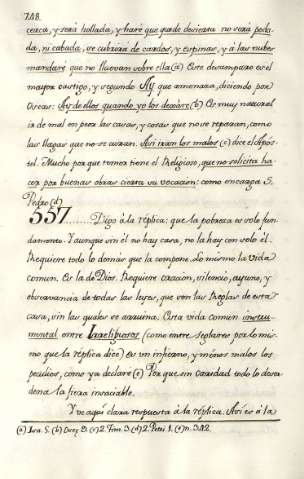 288.
cerca, y será hollada, y haré que quede desierta no será poda
da, ni cabada, se cubrirá de cardos, y espinas, y á las nubes
mandaré que no lluevan sobre ella (a) Este desamparo es el
mayor castigo, y segundo Ay que amenaza, diciendo por
Oseas: Ay de ellos quando yo los dexáre (b) Es muy natural
ir de mal en peor las casas, y cosas que no se reparan, como
las llagas que no se curan. Assi iran los malos (c) dice el Após
tol. Mucho por que temer tiene el Religioso, que no solicita ha
cer por buenas obras cierta su vocacion: como encarga S.
Pedro (d)
557........ Digo à la réplica: que la pobreza es solo fun
damento. Y aunque sin él no hay casa, no la hay con solo él.
Requiere todo lo demás que la compone. Lo mismo la vida
comun. Es la de Dios. Requiere oracion, silencio, ayuno, y
observancia de todas las leyes, que son las Reglas de esta
casa, sin las quales se arruina. Esta vida comun instru
mental entre Irreligiosos (como entre seglares por lo mis
mo que la réplica dice) es un infierno, y menos malos los
perdios, como ya declaré (e) Por que sin caridad todo lo desor
dena la fiera insaciable.
Y ve aquí clara respuesta á la réplica. Assi es á la
(a) Isa. 5. (b) Oseę 9. (c) 2. Tim. 3. (d) 2. Petri 1. (e) n. 342.